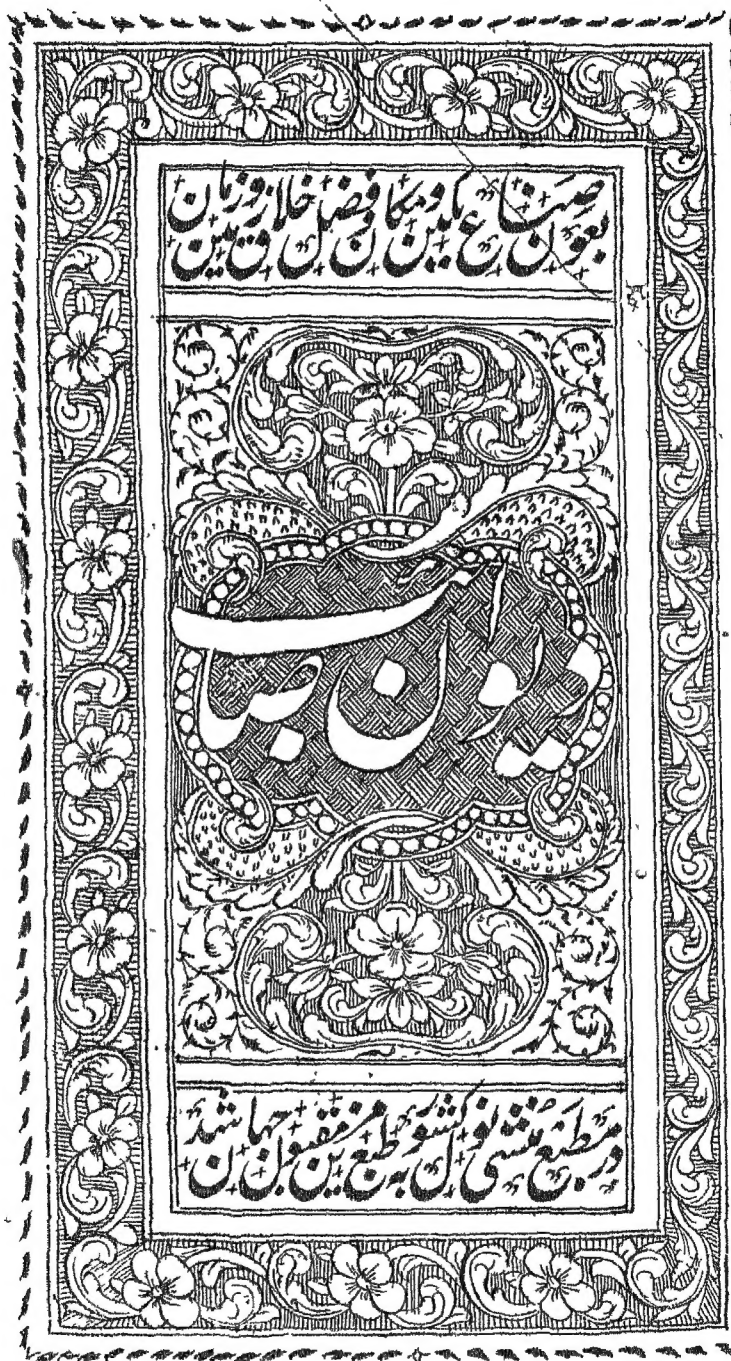 بعون صناع مکین و مکان فضل خلاق زمین و زمان
دیوان صائب
در مطبع منشی نولکشور به طبع مزین مقبول جهان شد